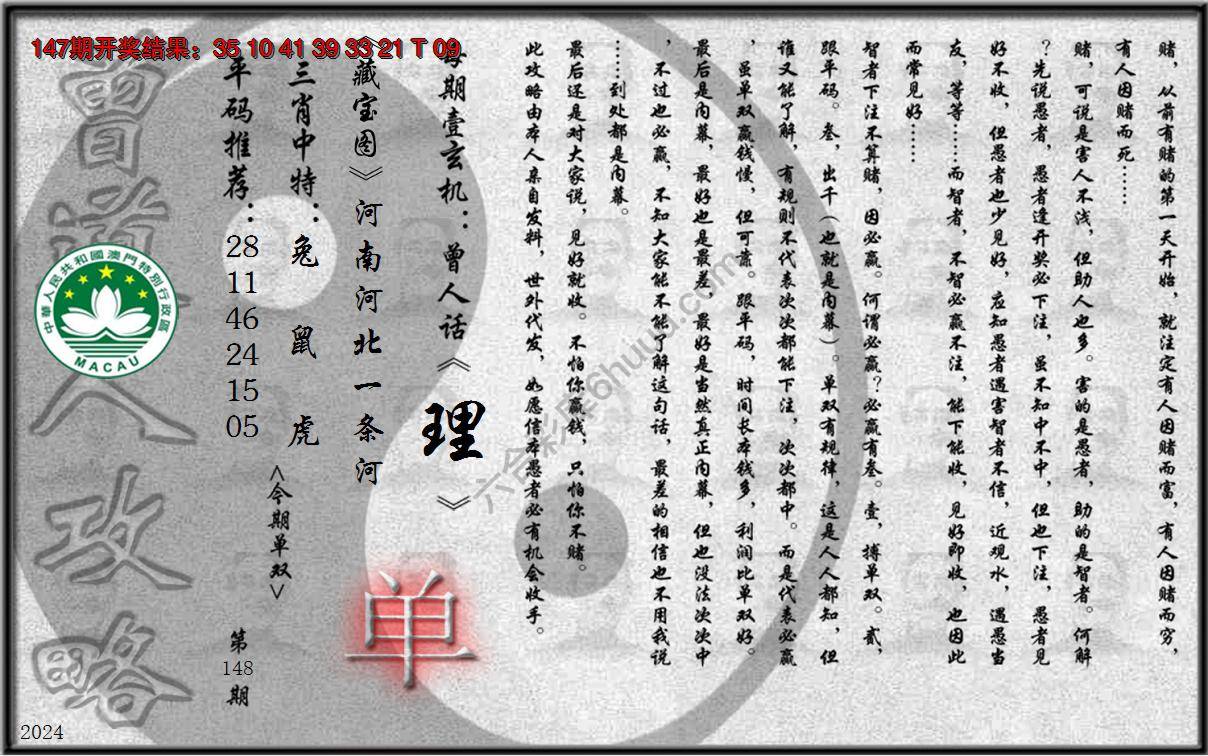 147期开奖结果：35 10 41 39 33 21 T 09
赌，从前有赌的第一天开始，就注定有人因赌而富，有人因赌而穷，
有人因赌而死……
赌，可说是害人不浅，但助人也多。害的是愚者，助的是智者。何解
？先说愚者，愚者逢开奖必下注，虽不知中不中，但也下注，愚者见
好不收，但愚者也少见好，应知愚者遇害智者不信，近观水，遇愚当
友，等等……而智者，不智必赢不注，能下能收，见好即收，也因此
而常见好……
智者下注不算赌，因必赢。何谓必赢？必赢有叁。壹，搏单双。贰，
跟平码。叁，出千（也就是内幕）。单双有规律，这是人人都知，但
谁又能了解，有规则不代表次次都能下注，次次都中。而是代表必赢
，虽单双赢钱慢，但可靠。跟平码，时间长本钱多，利润比单双好。
最后是内幕，最好也是最差，最好是当然真正内幕，但也没法次次中
，不过也必赢，不知大家能不能了解这句话，最差的相信也不用我说
……到处都是内幕。
最后还是对大家说，见好就收。不怕你赢钱，只怕你不赌。
此攻略由本人亲自发料，世外代发，如愿信本愚者必有机会收手。
每期壹玄机：曾人话《理》
《藏宝图》河南河北一条河
三肖中特：兔 鼠 虎
平码推荐：28 11 46 24 15 05
<今期单双>
单
第148期
曾道人攻略
中華人民共和國澳門特別行政區
MACAU
六合彩库6huuu.com
2024